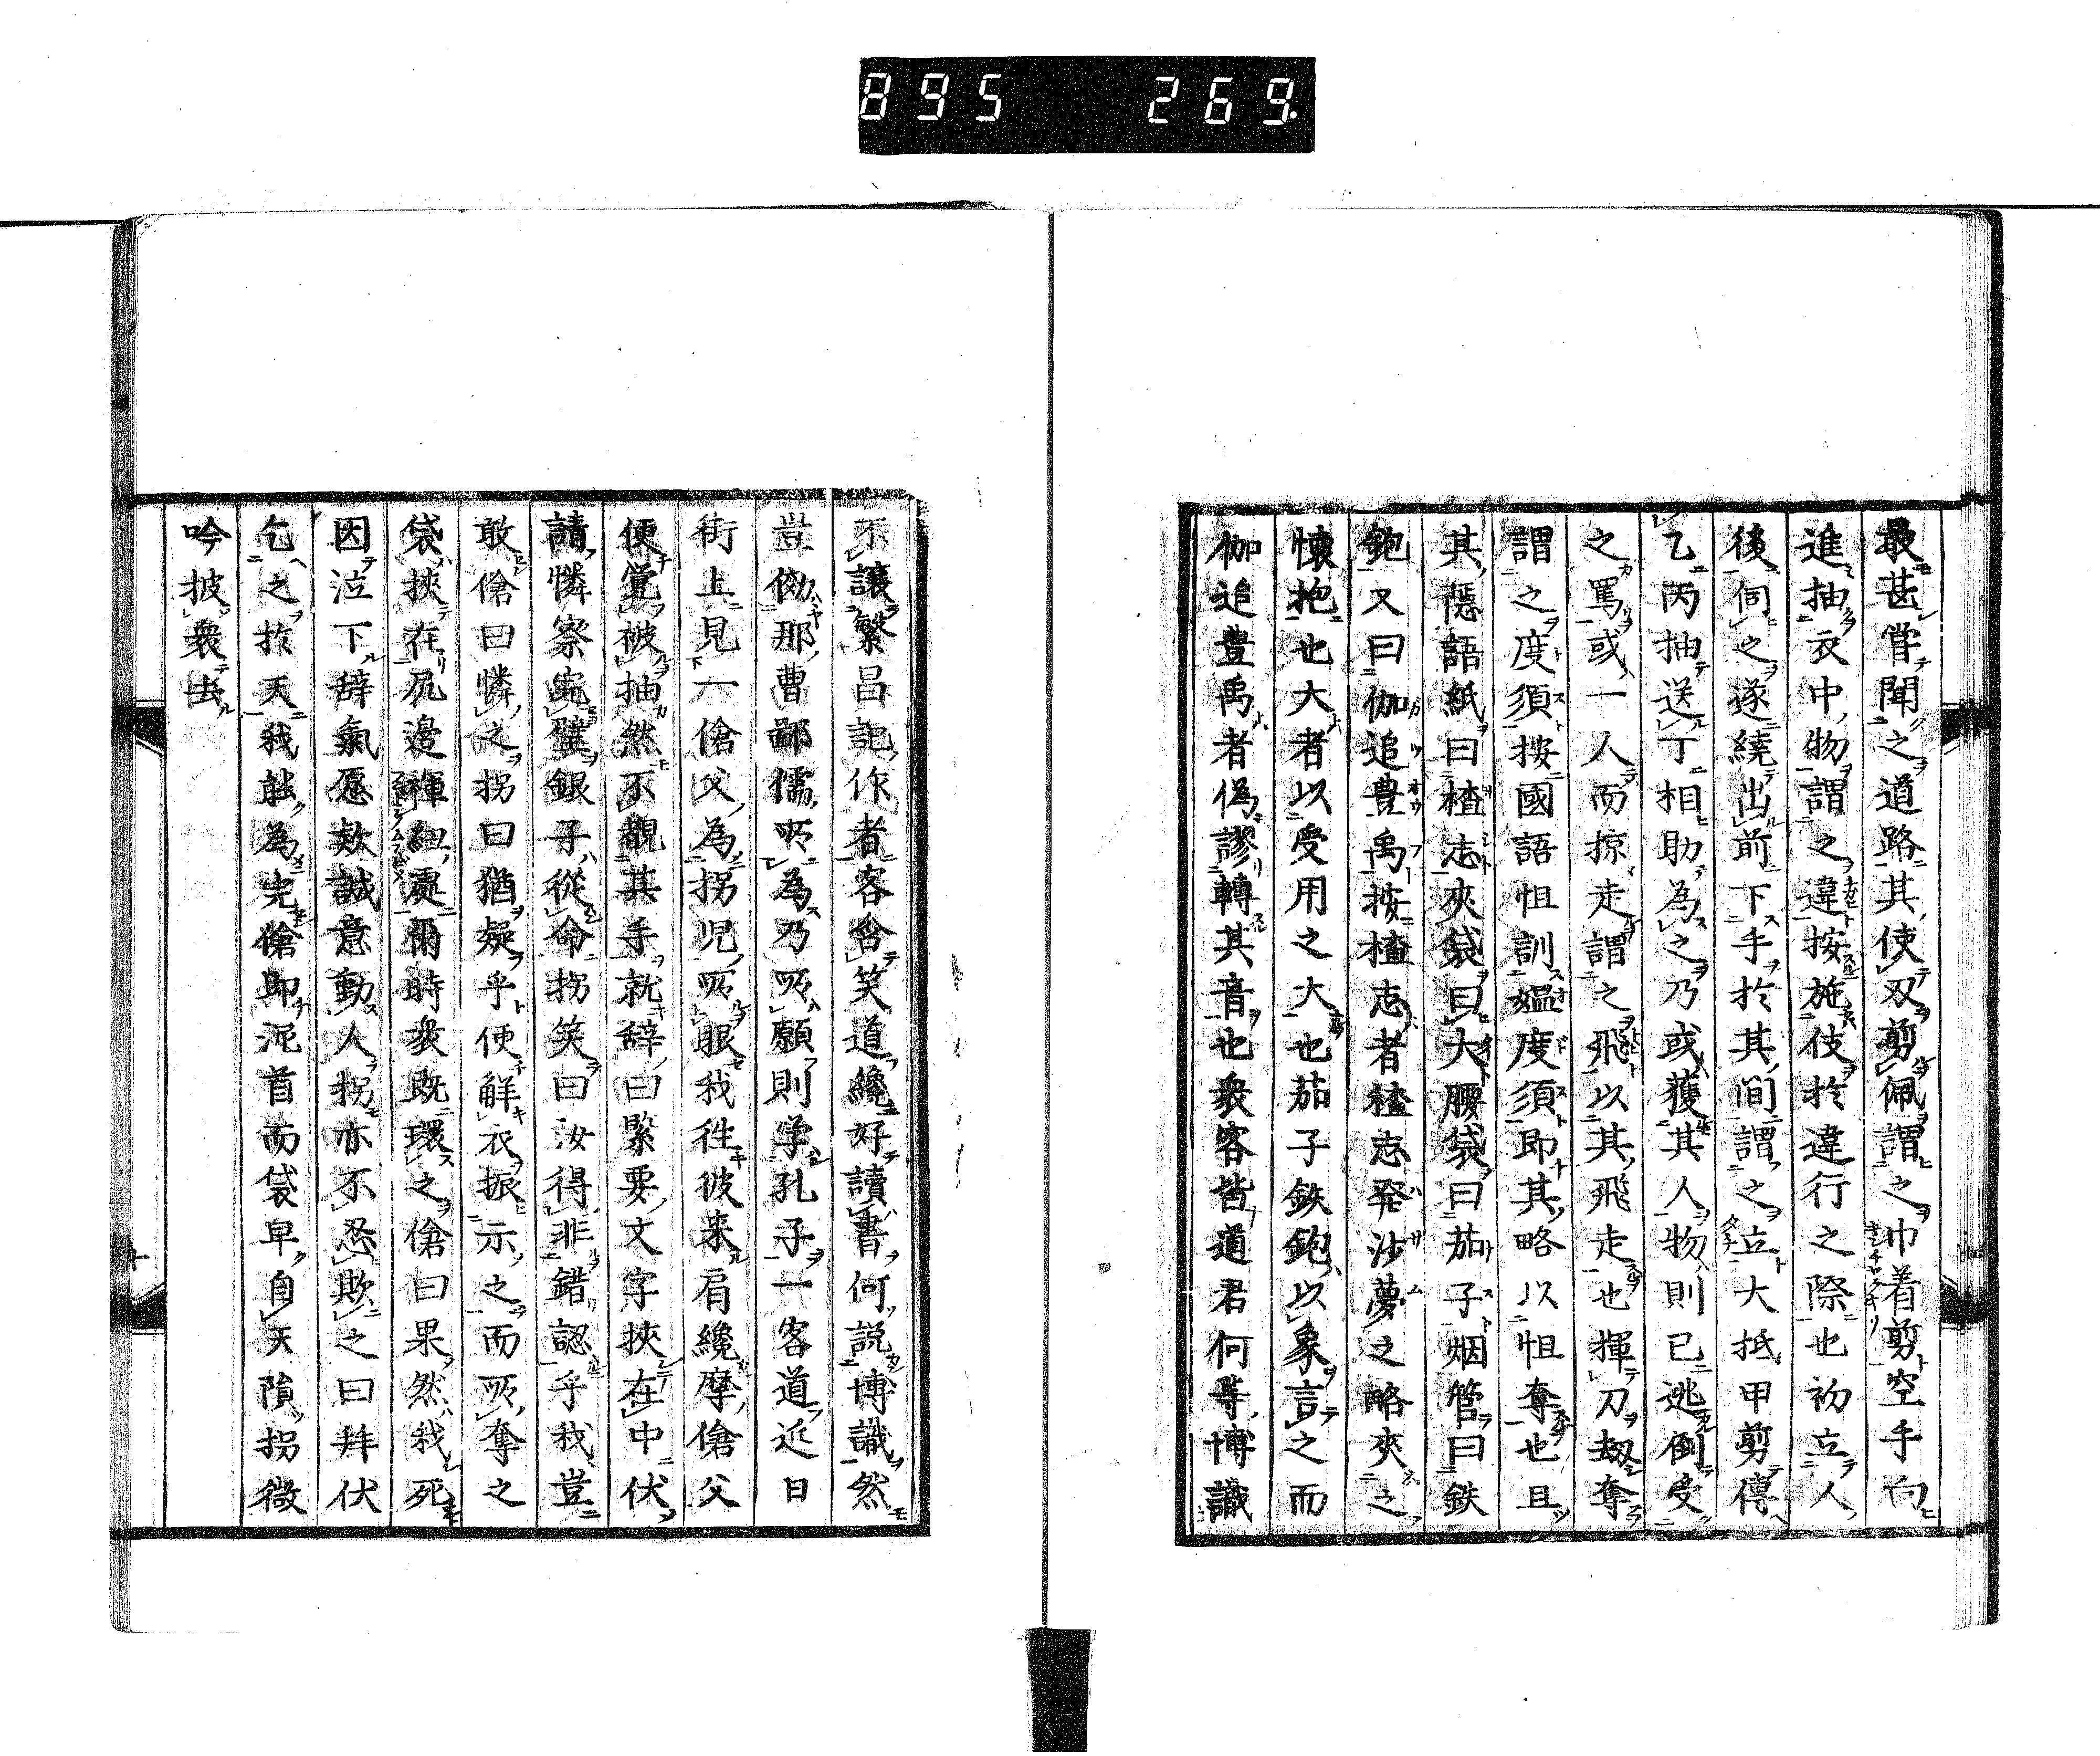 895 269
最甚甞聞之道路其使刄剪佩謂之巾着剪空手向
進抽衣中物謂之違按施伎於違行之際也初立人
後伺之遂繞出前下手於其間謂之立大抵甲剪傳
乙丙抽送丁相助為之乃或獲其人物則已逃倒受
之罵或一人而掠走謂之飛以其飛走也揮刀刼奪
謂之度須按國語怚訓媼度須即其略以怚奪也且
其隱語紙曰楂志夾袋曰大腰袋曰茄子烟管曰鉄
鉋又曰伽追豊禹按楂志者楂志發沙夢之略夾之
懐抱也大者以受用之大也茄子鉄鉋以象言之而
伽追豊禹者偽謬轉其音也衆客皆道君何等博識
不讓繫昌記作者客含笑道纔好讀書何説博識然
豈傚那曹鄙儒所為乃所願則学孔子一客道近日
街上見一傖父為拐児所眼我徃彼来肩纔摩傖父
便覚被抽然不覩其手就辞曰緊要文字挾在中伏
請憐察完璧銀子從命拐笑曰汝得非錯認乎我豈
敢傖曰憐之拐曰猶疑乎便解衣振示之而所奪之
袋挾在尻邉褌紐處爾時衆既環之傖曰果然我死
因泣下辞氣愿欵誠意動人拐亦不忍欺之曰拜伏
乞之於天我能為完傖即泥首而袋早自天隕拐微
吟披衆去